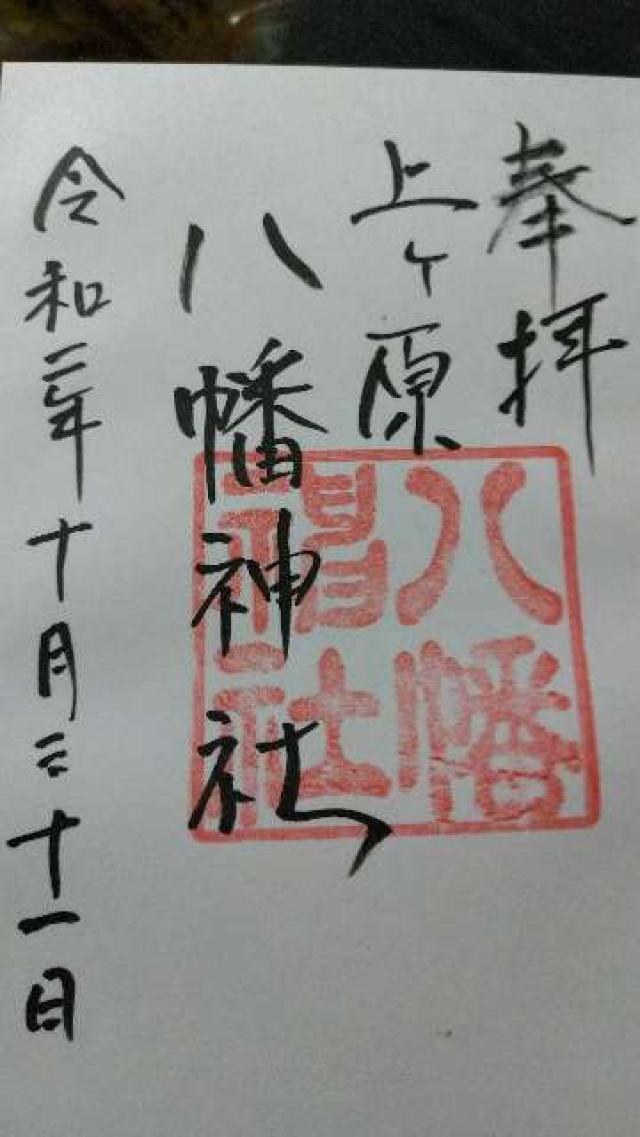 奉拝
上ヶ原
八幡神社
令和二年十月三十一日
八幡
神社